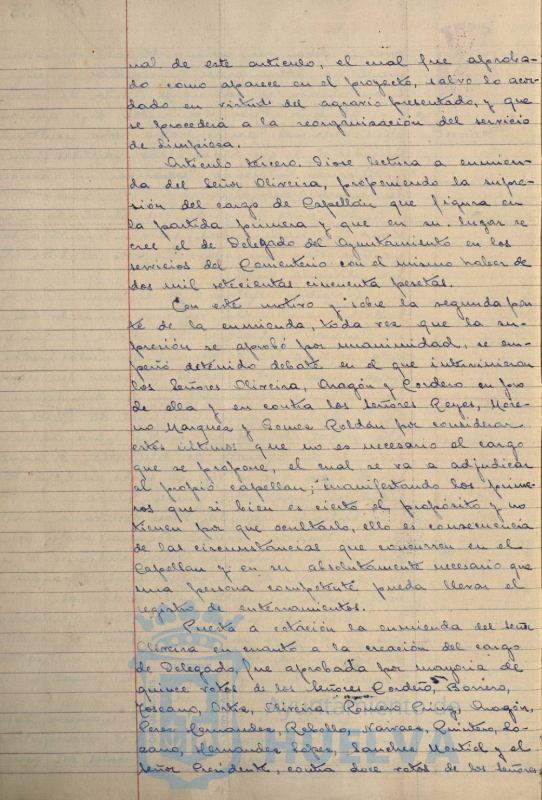 nal de este artículo, el cual fue aproba-
do como aparece en el proyecto, salvo lo acor-
dado en virtud del agravio presentado, y que
se procederá a la reorganización del servicio
de limpieza.
Artículo tercero. Diose lectura a enmien-
da del Señor Oliveira, proponiendo la supre-
sión del cargo de Capellán que figura en
la partida primera y que en su lugar se
cree el de Delegado del Ayuntamiento en los
servicios del Cementerio con el mismo haber de
dos mil setecientas cincuenta pesetas.
Con este motivo y sobre la segunda par-
te de la enmienda, toda vez que la su-
presión se aprobó por unanimidad, se em-
peñó detenido debate en el que intervinieron
los Señores Oliveira, Aragón y Cordero en pro
de ella y en contra los Señores Reyes, More-
no Marquez y Gomez Roldán por considerar
estos últimos que no es necesario el cargo
que se propone, el cual se va a adjudicar
al propio capellan; manifestando los prime-
ros que si bien es cierto el propósito y no
tienen por que ocultarlo, ello es consecuencia
de las circunstancias que concurren en el
Capellan y en ser absolutamente necesario que
una persona competente pueda llevar el
registro de enterramientos.
Puesta a votación la enmienda del Señor
Oliveira en cuanto a la creación del cargo
de Delegado, fue aprobada por mayoría de
quince votos de los Señores Cordero, Borrero,
Toscano, Ortiz, Oliveira, Romero Aragón,
Perez Hernandez, Rebollo, Narvaez, Quintero, Lo-
zano, Hernandez Lopez, Sanchez Montiel y el
Señor Presidente, contra doce votos de los Señores
HUELVA